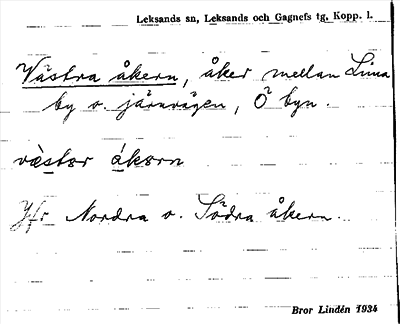 Leksands sn, Leksands och Gagnefs tg, Kopp. l.
Västra åkern, åker mellan Lima
by o. järnvägen, Ö byn.
västər åkərn
Jfr Nordra o. Södra åkern.
Bror Lindén 1934